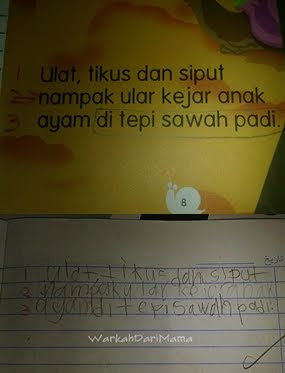 1 Ulat, tikus dan siput
2 nampak ular kejar anak
3 ayam di tepi sawah padi.
8
1 ulat, tikus dan siput
2 nampak ular kejar anak
3 ayam di tepi Sawah padi.
WarkahDariMama